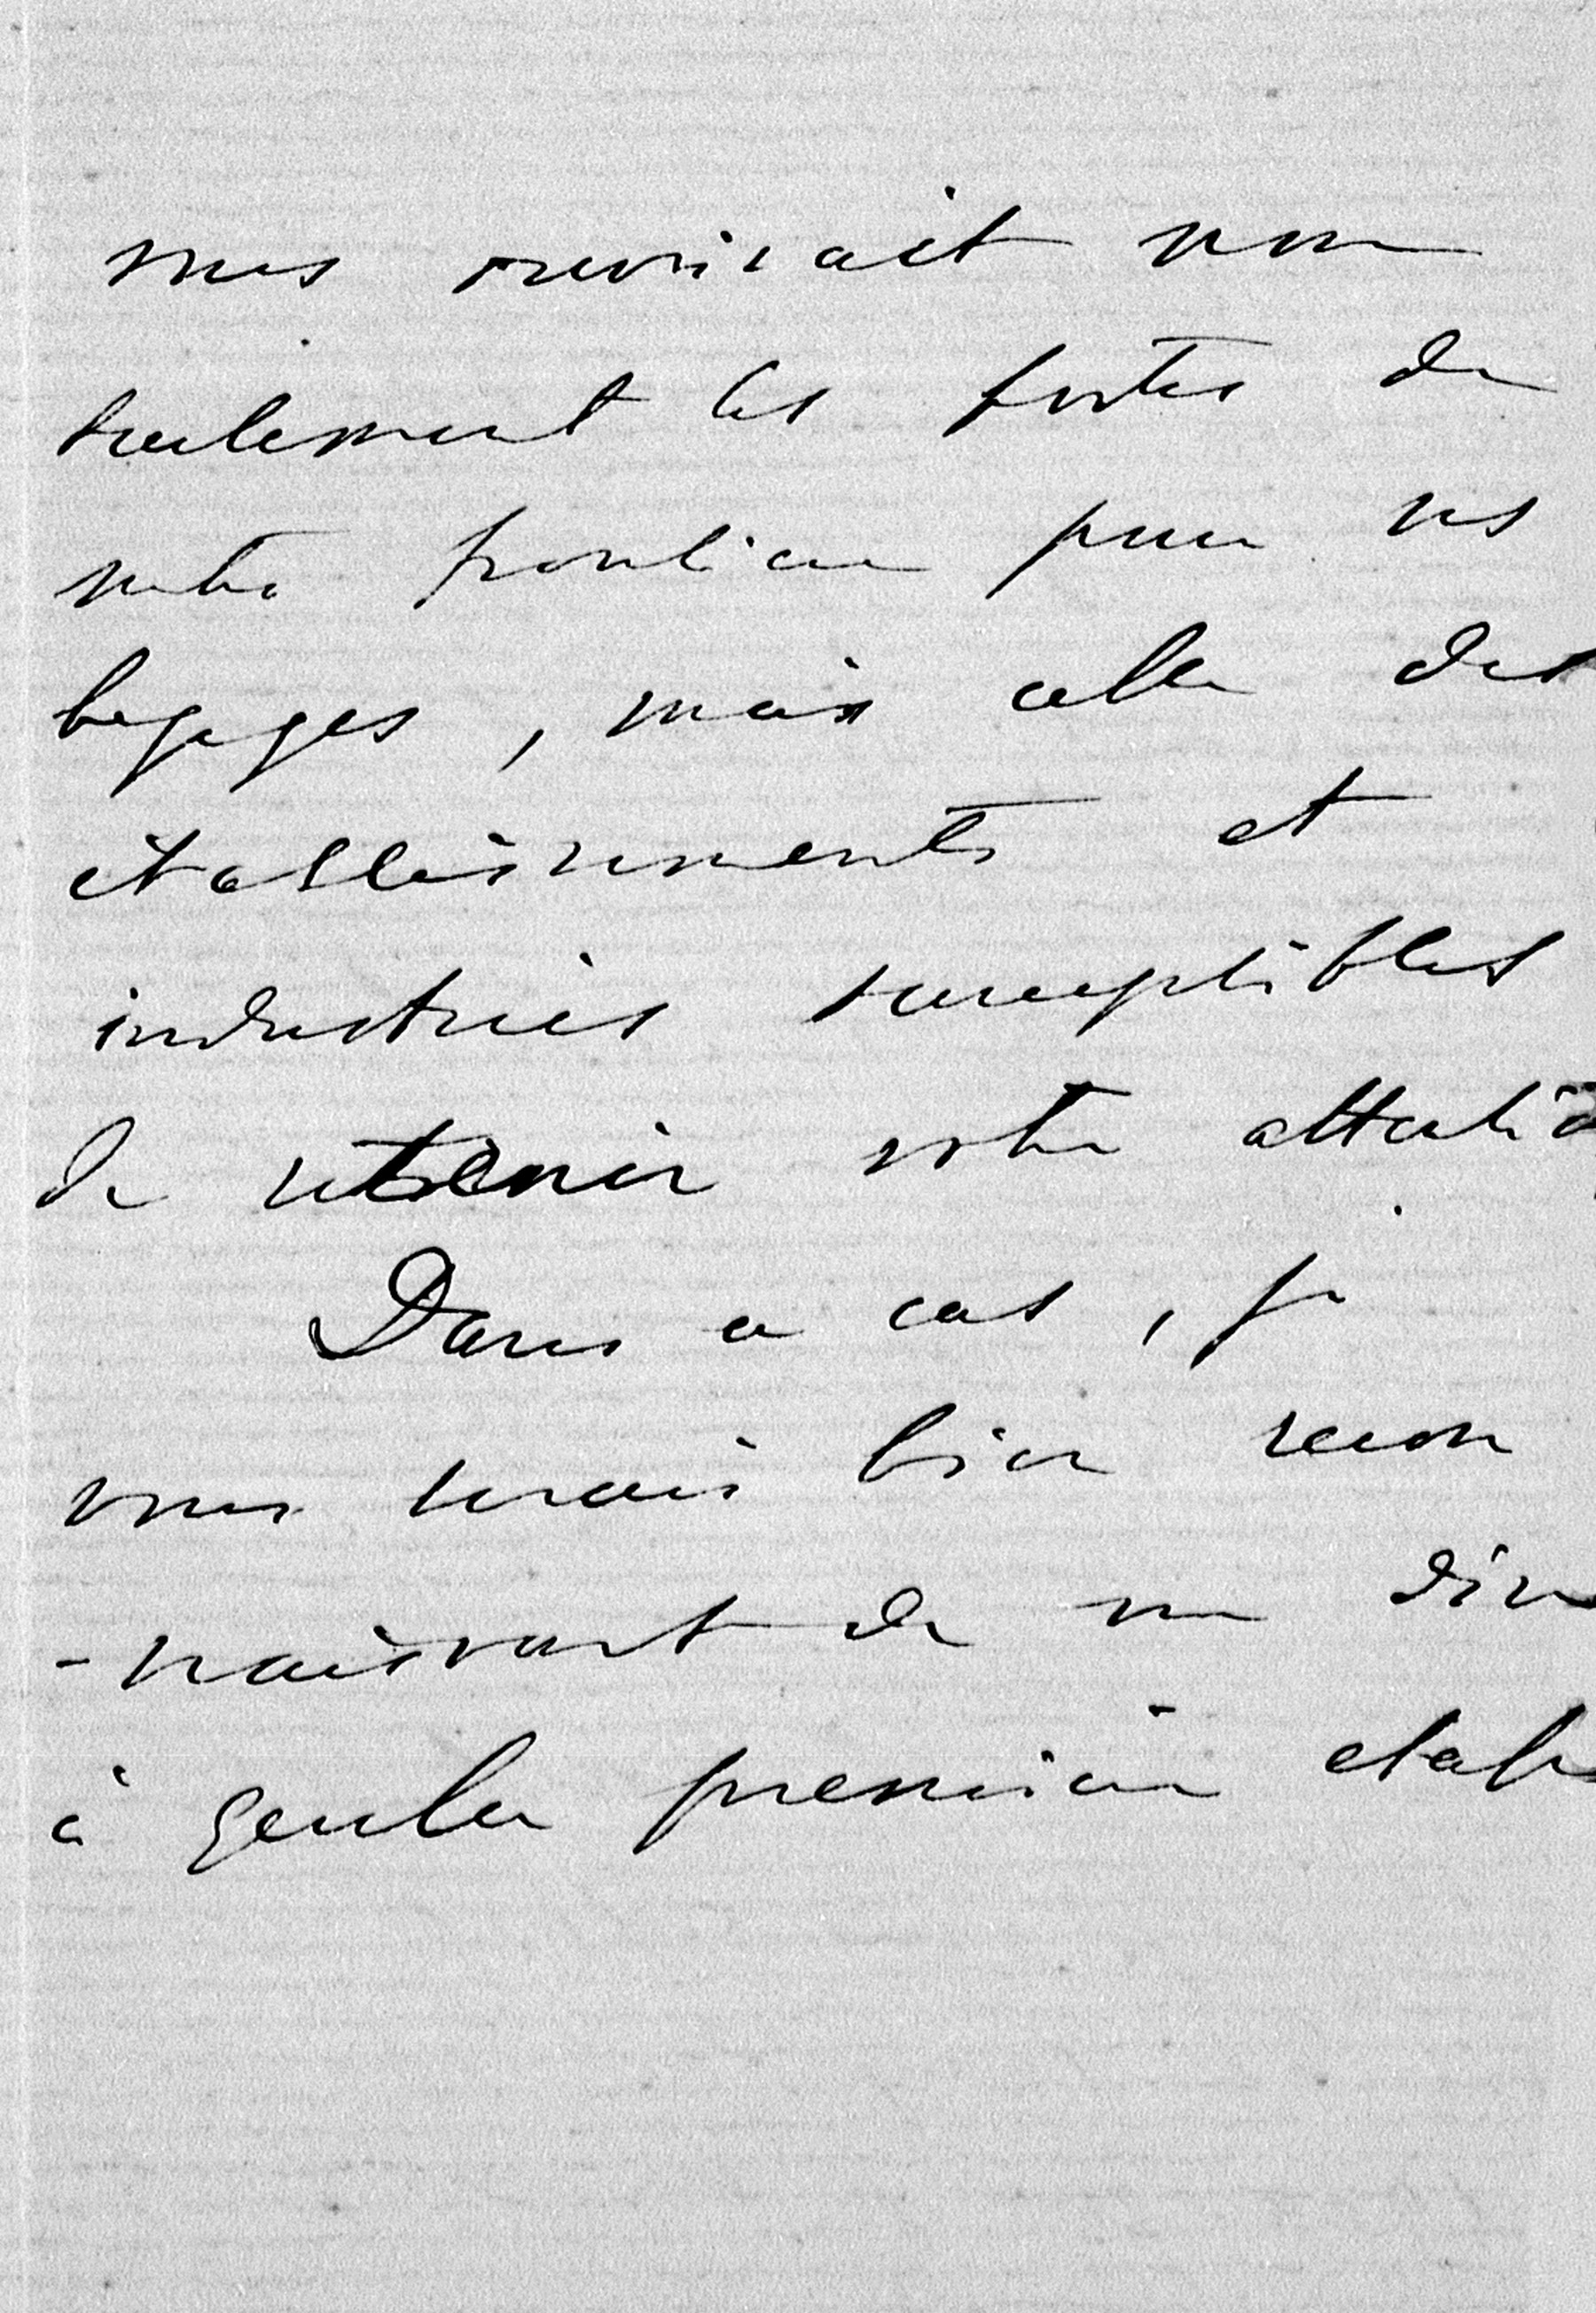 vous ouvrirait non
seulement les portes de
notre frontière pour vos
bagages, mais celle des
établissements et
industries susceptibles
de retenir votre attentio
Dans ce cas, je
vous serais bien recon
-naissant de me dire
à quelle première étab